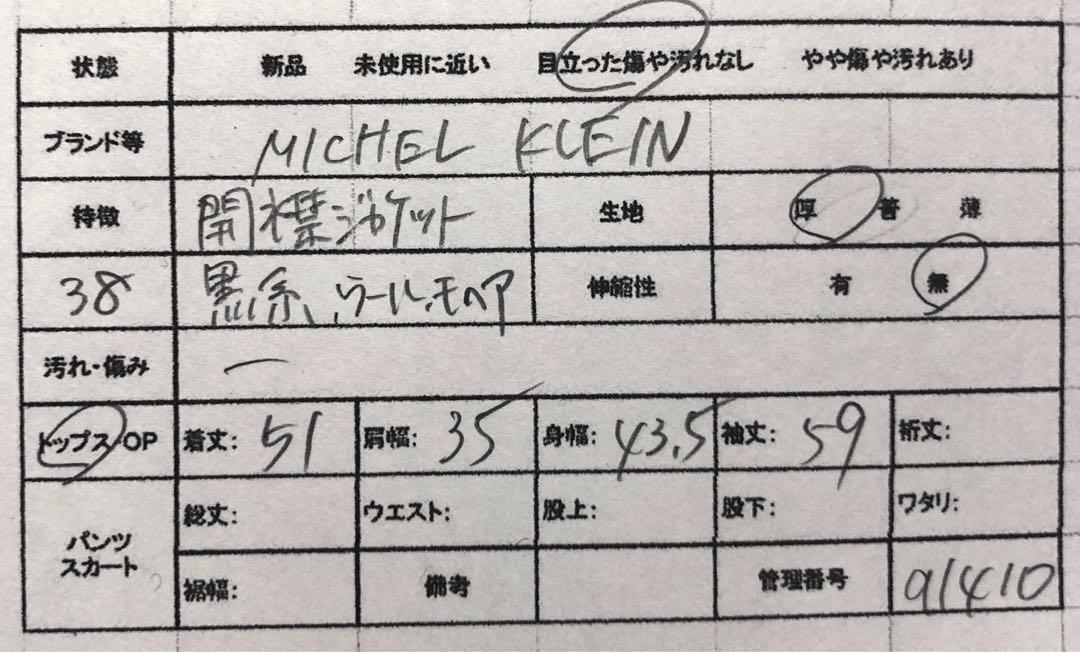 状態 新品 未使用に近い 目立った傷や汚れなし やや傷や汚れあり
ブランド等 MICHEL KLEIN
特徴 開襟ジャケット 生地 厚 普 薄
38 黒系、ウール、モヘア 伸縮性 有 無
汚れ・傷み ー
トップス/OP 着丈: 51 肩幅: 35 身幅: 43.5 袖丈: 59 裄丈:
パンツ スカート 総丈: ウエスト: 股上: 股下: ワタリ:
裾幅: 備考 管理番号 91410